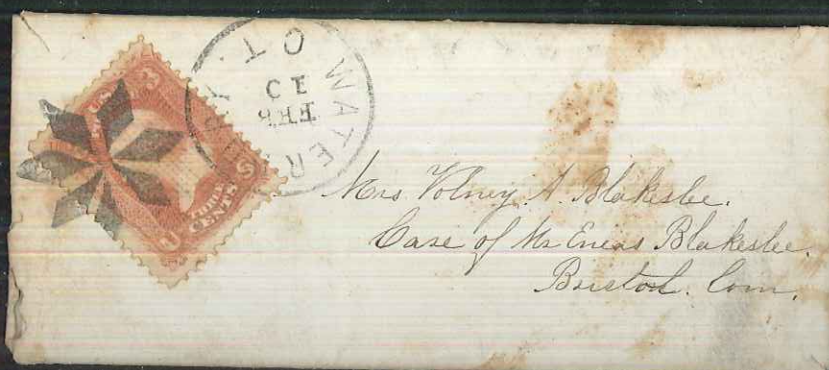 WATERBURY CT.
FEB
13
U.S.
3
THREE CENTS
Mrs Volney A. Blakeslee.
Care of Mr Eneas Blakeslee.
Bristol. Conn.